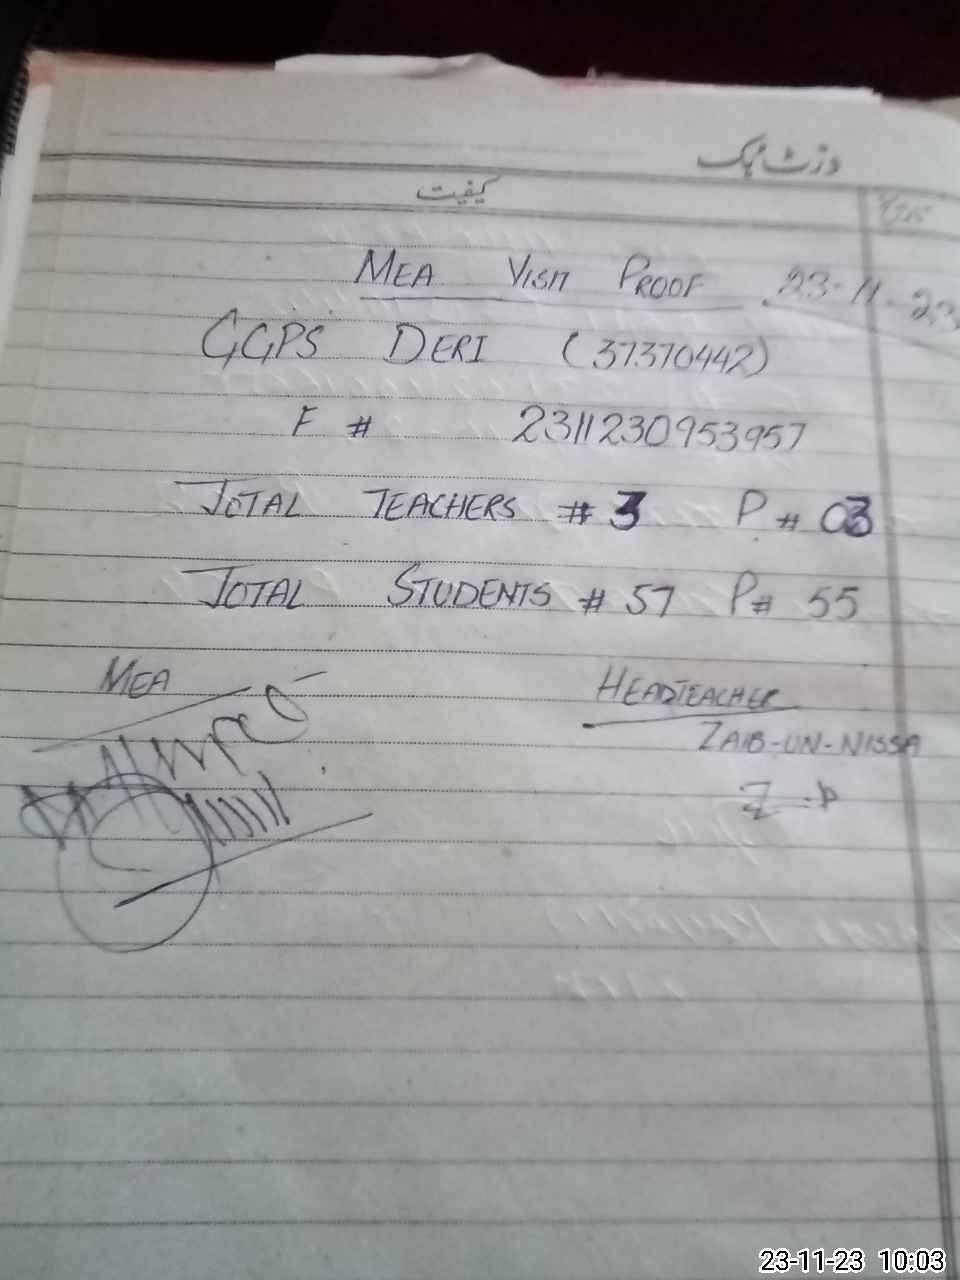 وزٹ بک
کیفیت
MEA VISIT PROOF 23-11-23
GGPS DERI (37370442)
F # 2311230953957
TOTAL TEACHERS # 3 P # 03
TOTAL STUDENTS # 57 P# 55
MEA
HEADTEACHER
ZAIB-UN-NISSA
23-11-23 10:03